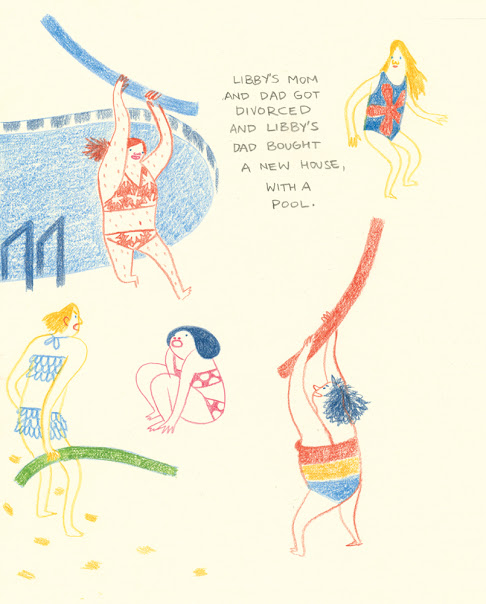 LIBBY'S MOM
AND DAD GOT
DIVORCED
AND LIBBY'S
DAD BOUGHT
A NEW HOUSE,
WITH A
POOL.